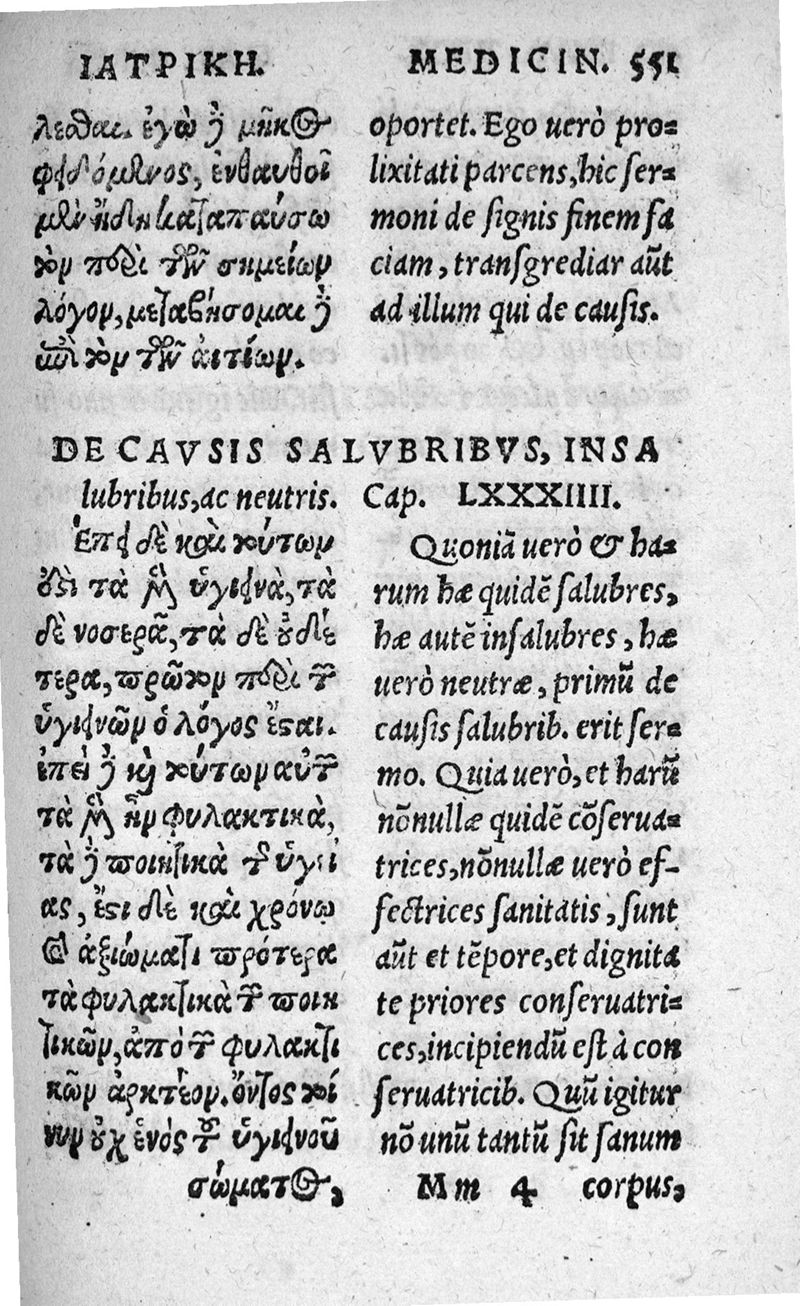 ΙΑΤΡΙΚΗ.
λεσθαι. ἐγὼ δὲ μήκος
φειδόμενος, ἐνθαυθοῖ
μὲν ἤδη καταπαύσω
τὸν περὶ τῶν σημείων
λόγον, μεταβήσομαι δὲ
ἐπὶ τὸν τῶν αἰτίων.
MEDICIN. 551
oportet. Ego uerò pro=
lixitati parcens, hic ser=
moni de signis finem fa
ciam, transgrediar aũt
ad illum qui de causis.
DE CAVSIS SALVBRIBVS, INSA
lubribus, ac neutris. Cap. LXXXIIII.
Ἐπεὶ δὲ καὶ τούτων
ὅτι τὰ μὲν ὑγιεινὰ, τὰ
δὲ νοσερὰ, τὰ δὲ οὐδέ
τερα, πρῶτον περὶ τῶν
ὑγιεινῶν ὁ λόγος ἔσται.
ἐπεὶ δὲ καὶ τούτων αὐτῶν
τὰ μὲν ἦν φυλακτικὰ,
τὰ δὲ ποιητικὰ τῆς ὑγεί
ας, ἔτι δὲ καὶ χρόνω
καὶ ἀξιώματι πρότερα
τὰ φυλακτικὰ τῶν ποιη
τικῶν, ἀπὸ τῶν φυλακτι
κῶν ἀρκτέον. ὄντος τοί
νυν οὐχ ἑνὸς τοῦ ὑγιεινοῦ
σώματος,
Quoniã uerò & ha=
rum hæ quidẽ salubres,
hæ autẽ insalubres, hæ
uerò neutræ, primũ de
causis salubrib. erit ser=
mo. Quia uerò, et harũ
nõnullæ quidẽ cõserua=
trices, nõnullæ uerò ef-
fectrices sanitatis, sunt
aũt et tẽpore, et dignita
te priores conseruatri=
ces, incipiendũ est à con
seruatricib. Quũ igitur
nõ unũ tantũ sit sanum
Mm 4 corpus,